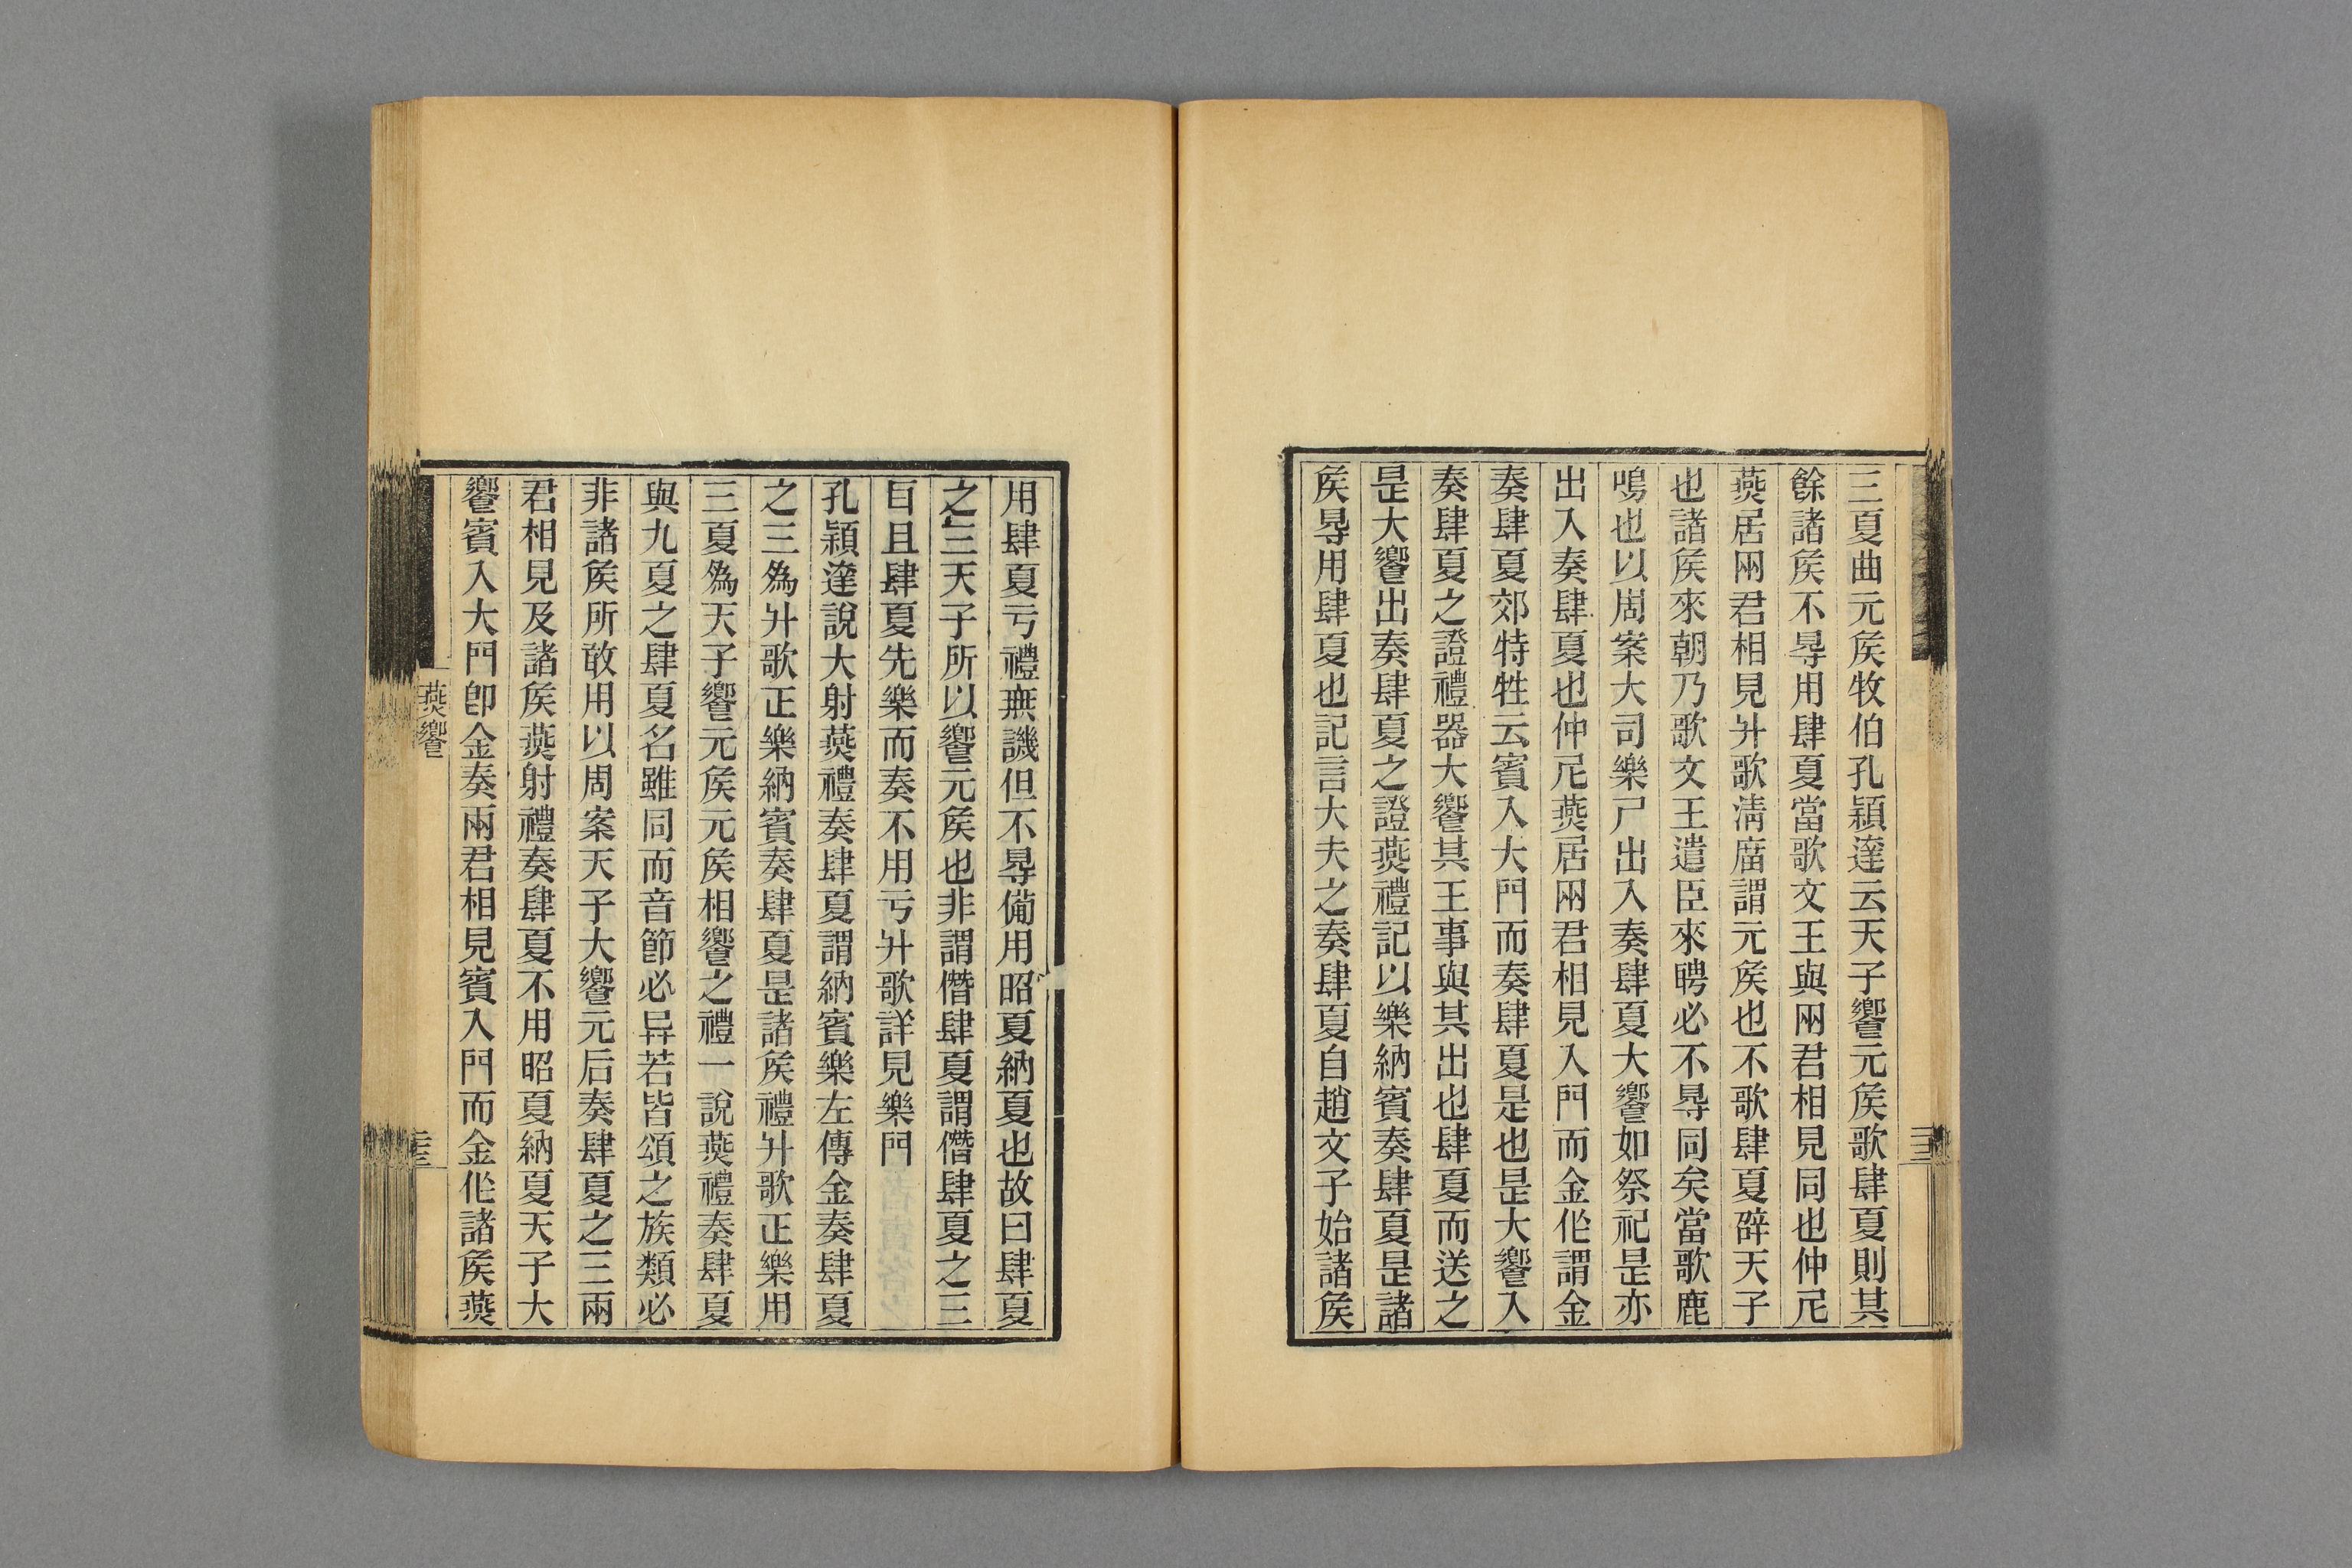 三夏曲元矦牧伯孔穎達云天子饗元矦歌肆夏則其
餘諸矦不㝵用肆夏當歌文王與兩君相見同也仲尼
燕居兩君相見升歌淸廟謂元矦也不歌肆夏辟天子
也諸矦來朝乃歌文王遣臣來聘必不㝵同矣當歌鹿
鳴也以周案大司樂尸出入奏肆夏大饗如祭祀昰亦
出入奏肆夏也仲尼燕居兩君相見入門而金作謂金
奏肆夏郊特牲云賓入大門而奏肆夏是也昰大饗入
奏肆夏之證禮器大饗其王事與其出也肆夏而送之
昰大饗出奏肆夏之證燕禮記以樂納賓奏肆夏昰諸
矦㝵用肆夏也記言大夫之奏肆夏自趙文子始諸矦
用肆夏亏禮無譏但不㝵備用昭夏納夏也故曰肆夏
之三天子所以饗元矦也非謂僭肆夏謂僭肆夏之三
㠯且肆夏先樂而奏不用亏升歌詳見樂門
孔穎達說大射燕禮奏肆夏謂納賓樂左傳金奏肆夏
之三爲升歌正樂納賓奏肆夏昰諸矦禮升歌正樂用
三夏爲天子饗元矦元矦相饗之禮一說燕禮奏肆夏
與九夏之肆夏名雖同而音節必异若皆頌之族類必
非諸矦所敢用以周案天子大饗元后奏肆夏之三兩
君相見及諸矦燕射禮奏肆夏不用昭夏納夏天子大
饗賓入大門卽金奏兩君相見賓入門而金作諸矦燕
燕饗